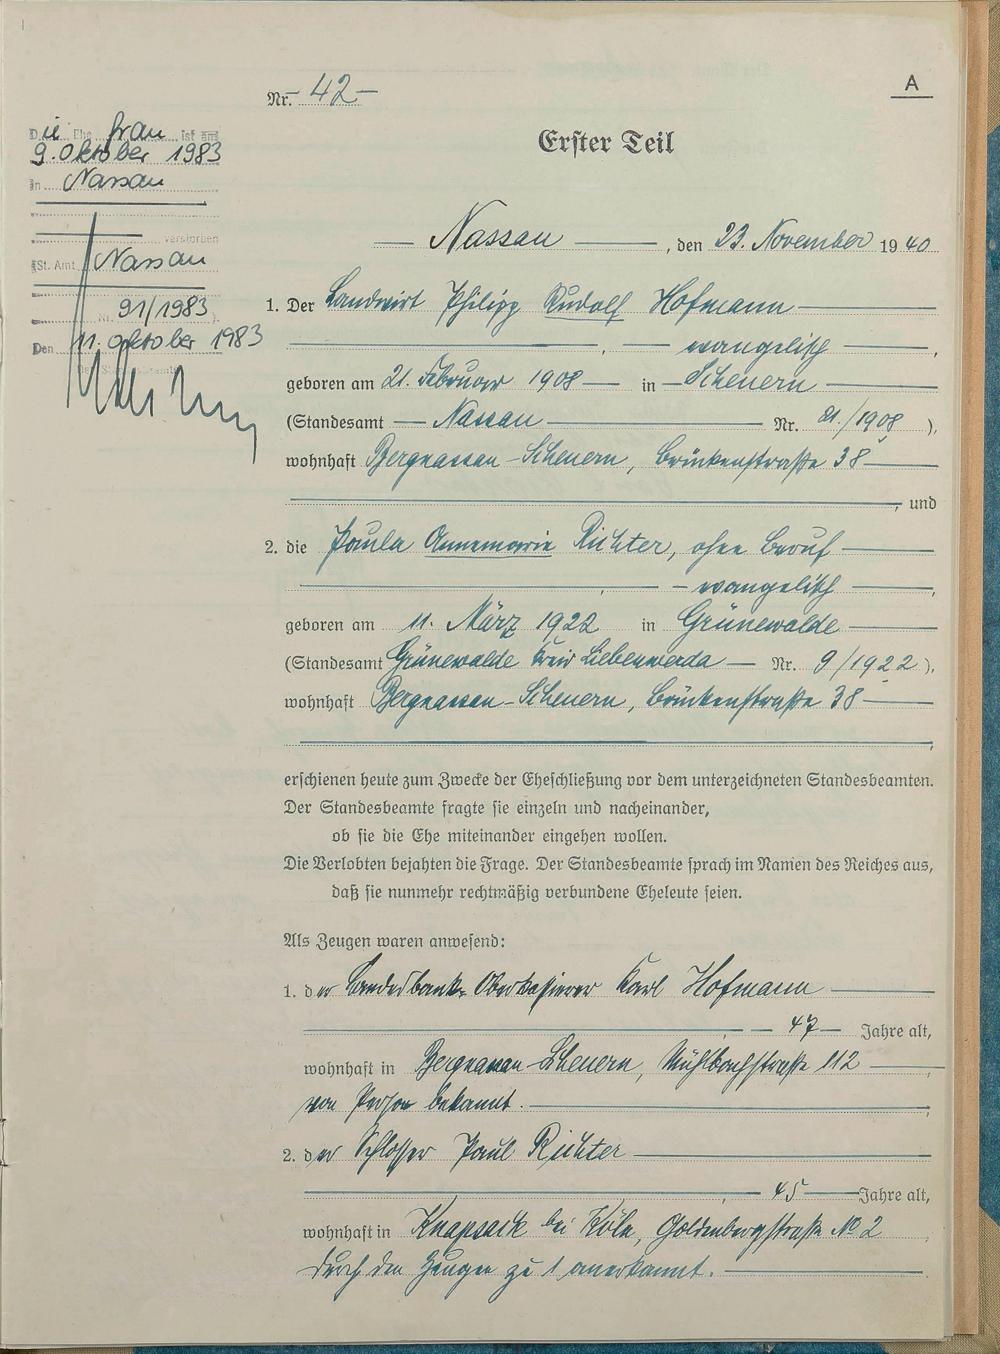 Nr. 42
A
Die Ehefrau ist am
9. Oktober 1983
in Nassau
verstorben
(St. Amt Nassau
Nr. 91/1983).
Den 11. Oktober 1983
Erster Teil
Nassau, den 23. November 1940
1. Der Landwirt Philipp Rudolf Hofmann
, evangelisch,
geboren am 21. Februar 1908 in Scheuern
(Standesamt Nassau Nr. 21/1908),
wohnhaft Bergnassau-Scheuern, Brückenstraße 38
, und
2. die Paula Annemarie Richter, ohne Beruf
, evangelisch,
geboren am 11. März 1922 in Grünewalde
(Standesamt Grünewalde Kreis Liebenwerda Nr. 9/1922),
wohnhaft Bergnassau-Scheuern, Brückenstraße 38
,
erschienen heute zum Zwecke der Eheschließung vor dem unterzeichneten Standesbeamten.
Der Standesbeamte fragte sie einzeln und nacheinander,
ob sie die Ehe miteinander eingehen wollen.
Die Verlobten bejahten die Frage. Der Standesbeamte sprach im Namen des Reiches aus,
daß sie nunmehr rechtmäßig verbundene Eheleute seien.
Als Zeugen waren anwesend:
1. der Landesbank-Oberkassierer Karl Hofmann
, 47 Jahre alt,
wohnhaft in Bergnassau-Scheuern, Mühlbachstraße 112
von Person bekannt.
2. der Schlosser Paul Richter
, 45 Jahre alt,
wohnhaft in Knapsack bei Köln, Goldenbergstraße No 2,
durch den Zeugen zu 1 anerkannt.